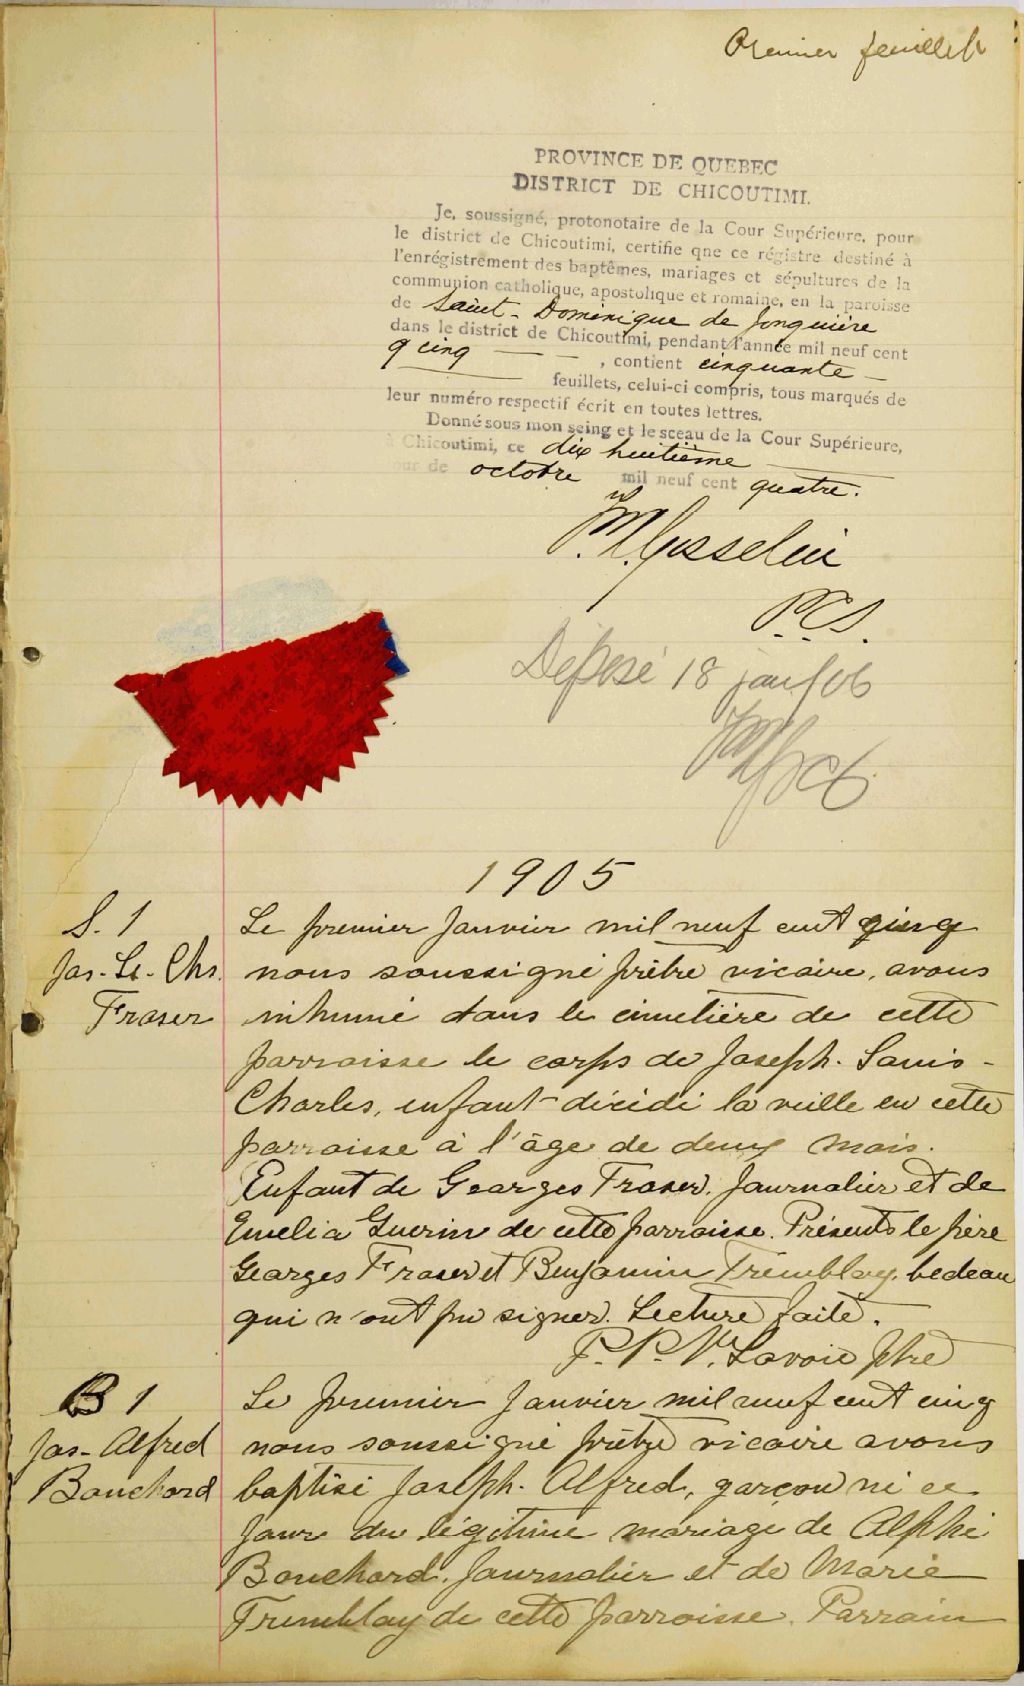 Premier feuillet
PROVINCE DE QUEBEC
DISTRICT DE CHICOUTIMI.
Je, soussigné, protonotaire de la Cour Supérieure, pour
le district de Chicoutimi, certifie que ce régistre destiné à
l'enrégistrement des baptêmes, mariages et sépultures de la
communion catholique, apostolique et romaine, en la paroisse
de Saint-Dominique de Jonquière
dans le district de Chicoutimi, pendant l'année mil neuf cent
cinq — — , contient cinquante —
feuillets, celui-ci compris, tous marqués de
leur numéro respectif écrit en toutes lettres.
Donné sous mon seing et le sceau de la Cour Supérieure,
à Chicoutimi, ce dix huitième
jour de octobre mil neuf cent quatre.
Gosselin
P.C.S.
Déposé 18 janv/06
1905
S. 1
Jos-Ls-Chs.
Fraser
Le premier Janvier mil neuf cent cinq
nous soussigné prêtre vicaire, avons
inhumé dans le cimetière de cette
parroisse le corps de Joseph-Louis-
Charles, enfant décédé la veille en cette
parroisse à l'âge de deux mois.
Enfant de Georges Fraser, Journalier et de
Emelia Guerin de cette parroisse. Présents le père
Georges Fraser et Benjamin Tremblay, bedeau
qui n'ont pu signer. Lecture faite.
P. P. V. Lavoie ptre
B 1
Jos-Alfred
Bouchard
Le premier Janvier mil neuf cent cinq
nous soussigné prêtre vicaire avons
baptisé Joseph-Alfred, garçon né ce
jour du légitime mariage de Alphé
Bouchard, Journalier et de Marie
Tremblay de cette parroisse. Parrain